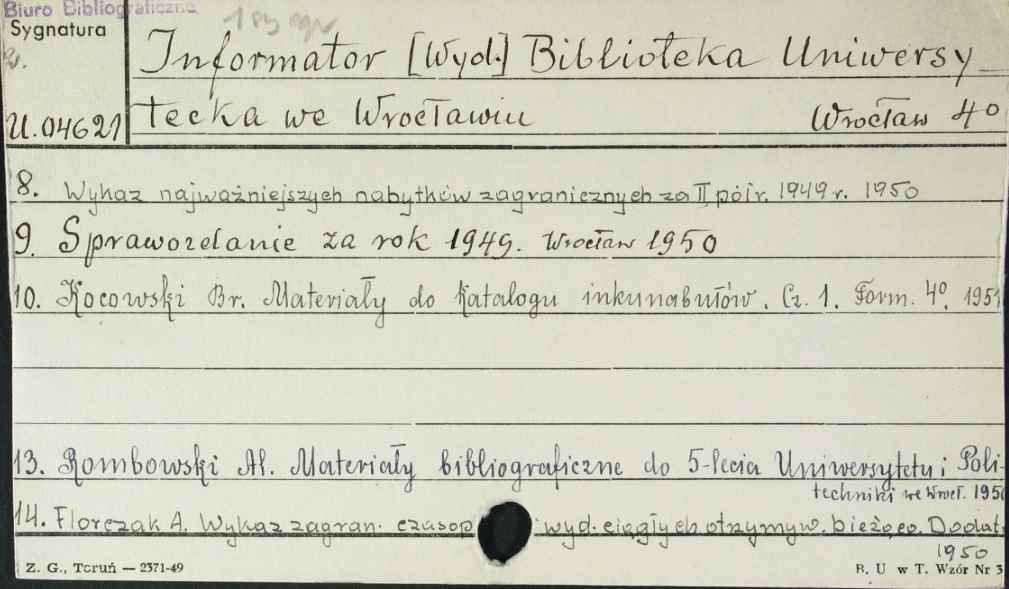 Biuro Bibliograficzne
Sygnatura
U.04621
Informator [Wyd.] Biblioteka Uniwersy-
tecka we Wrocławiu Wrocław 4º
8. Wykaz najważniejszych nabytków zagranicznych za II półr. 1949 r. 1950
9. Sprawozdanie za rok 1949. Wrocław 1950
10. Kocowski Br. Materiały do katalogu inkunabułów. Cz. 1. Form. 4º. 1951
13. Rombowski Al. Materiały bibliograficzne do 5-lecia Uniwersytetu i Poli-
techniki we Wrocł. 1950
14. Florczak A. Wykaz zagran. czasop i wyd. ciągłych otrzymyw. bieżąco. Dodat.
1950
Z. G., Toruń — 2371-49 B. U w T. Wzór Nr 3